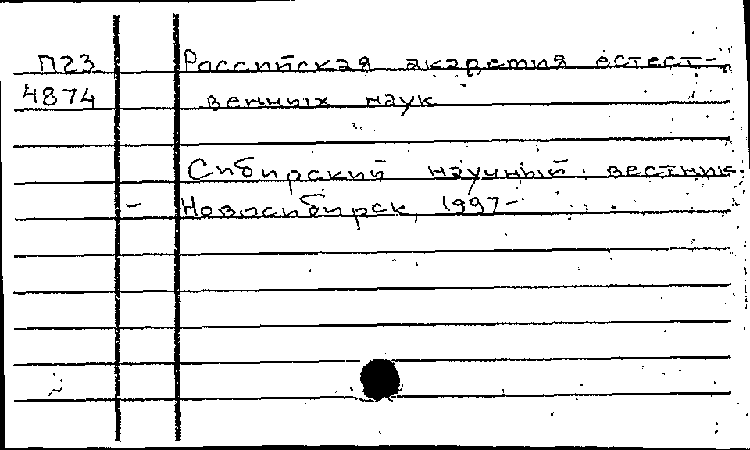 П23 Российская академия естест-
4874 венных наук
Сибирский научный вестник.
- Новосибирск, 1997-